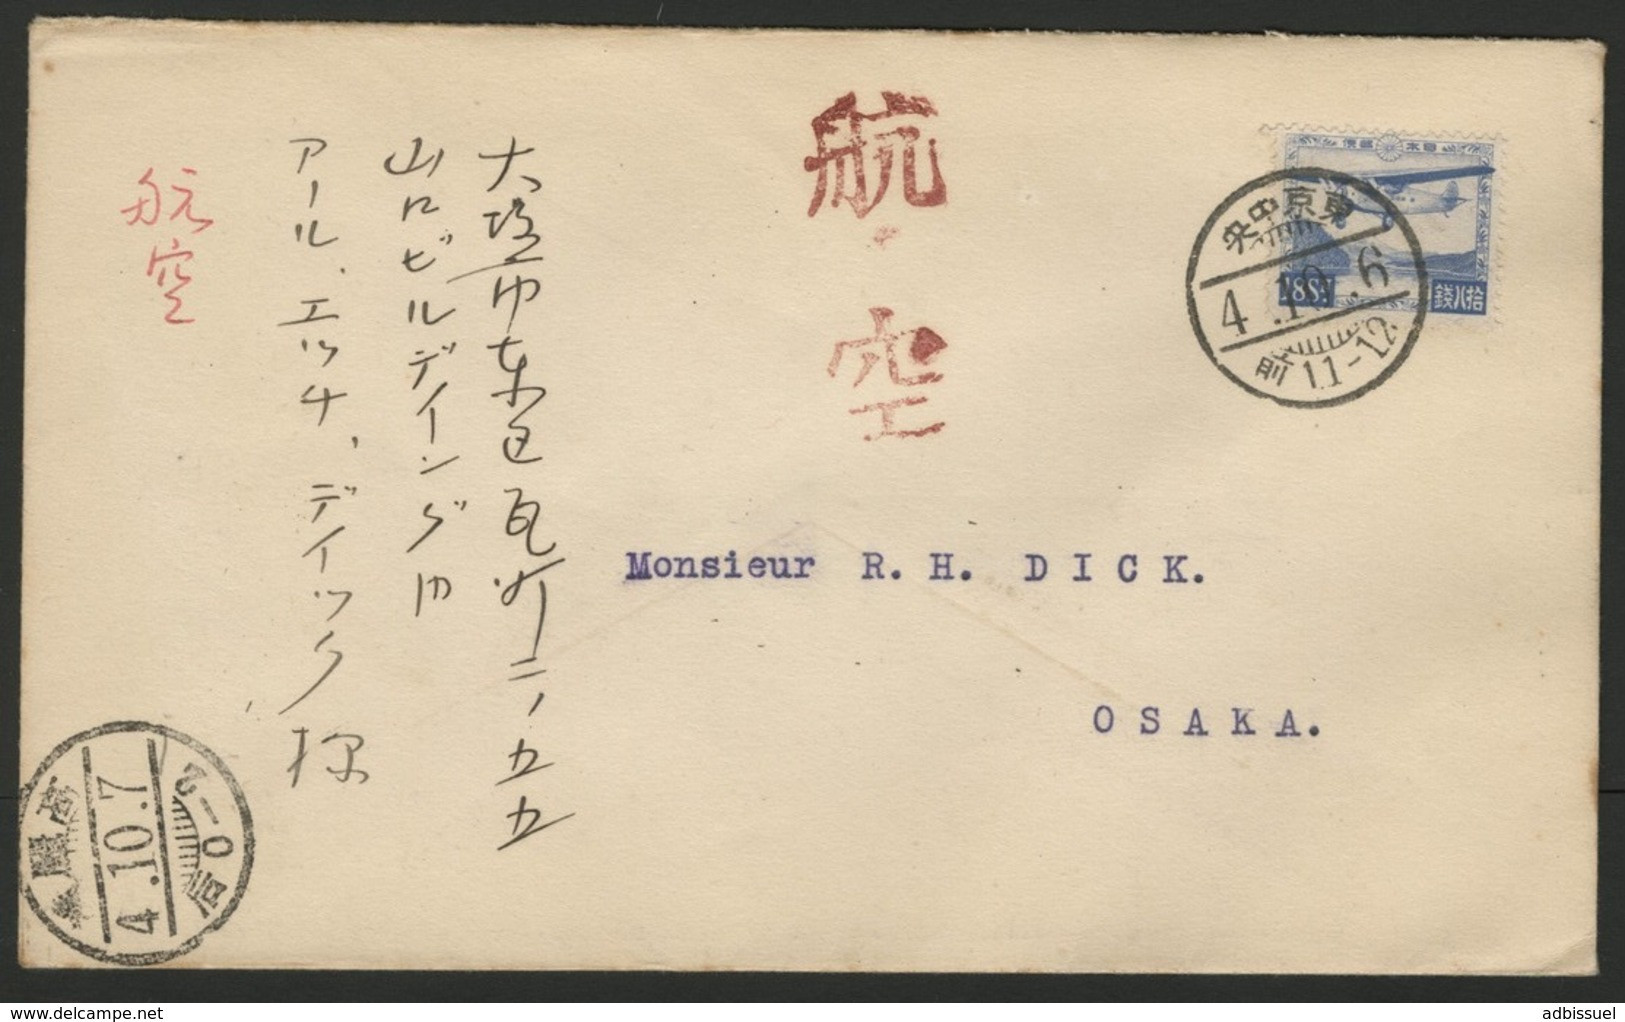 便郵本日
18Sn.
錢八拾
央中京東
4.10.6
前11-12
航空
大阪市東区瓦町二ノ五五
山口ビルディング内
アール、エッチ、ディック様
航空
Monsieur R. H. DICK.
OSAKA.
4.10.7
后0-2
delcampe.net
adbissuel